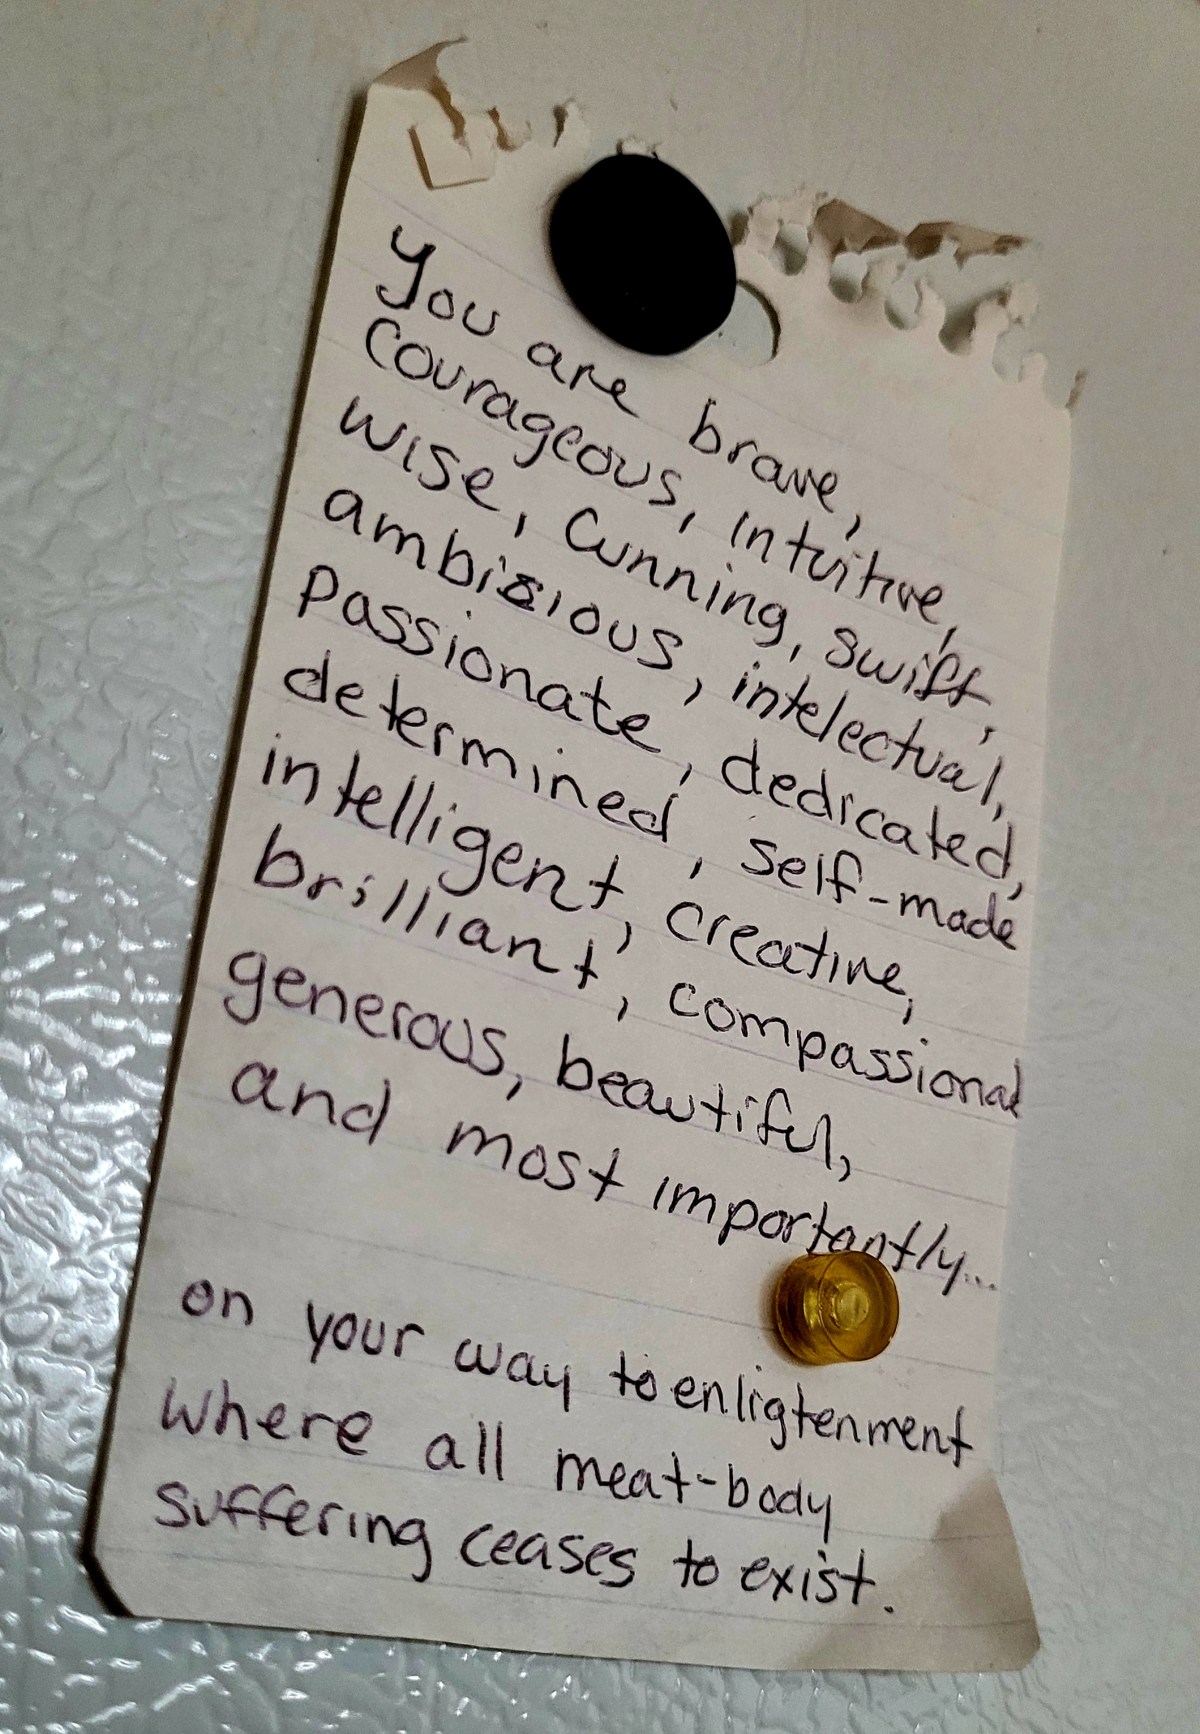 You are brave,
Courageous, intuitive,
wise, cunning, swift,
ambisious, intelectual,
passionate, dedicated,
determined, self-made
intelligent, creative,
brilliant, compassional
generous, beautiful,
and most importantly...
on your way to enligtenment
where all meat-body
suffering ceases to exist.